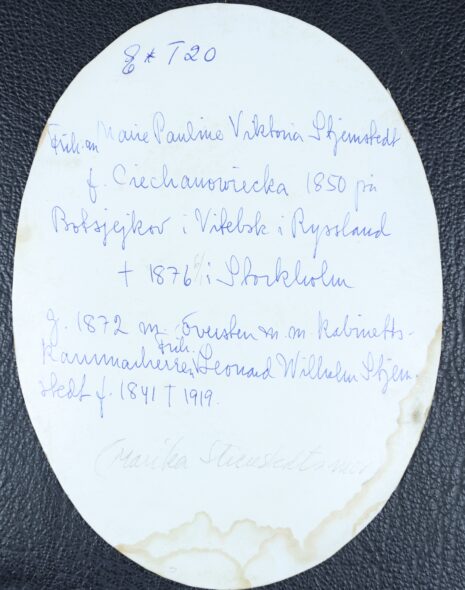 T20
Frih:an Marie Pauline Viktoria Stjernstedt
f. Ciechanowiecka 1850 på
Botsjejkov i Vitebsk i Ryssland
† 1876 i Stockholm
g. 1872 m. Översten m.m. Kabinetts-
Kammarherren Frih. Leonard Wilhelm Stjern-
stedt f. 1841 † 1919.
(Marika Stiernstedts mor